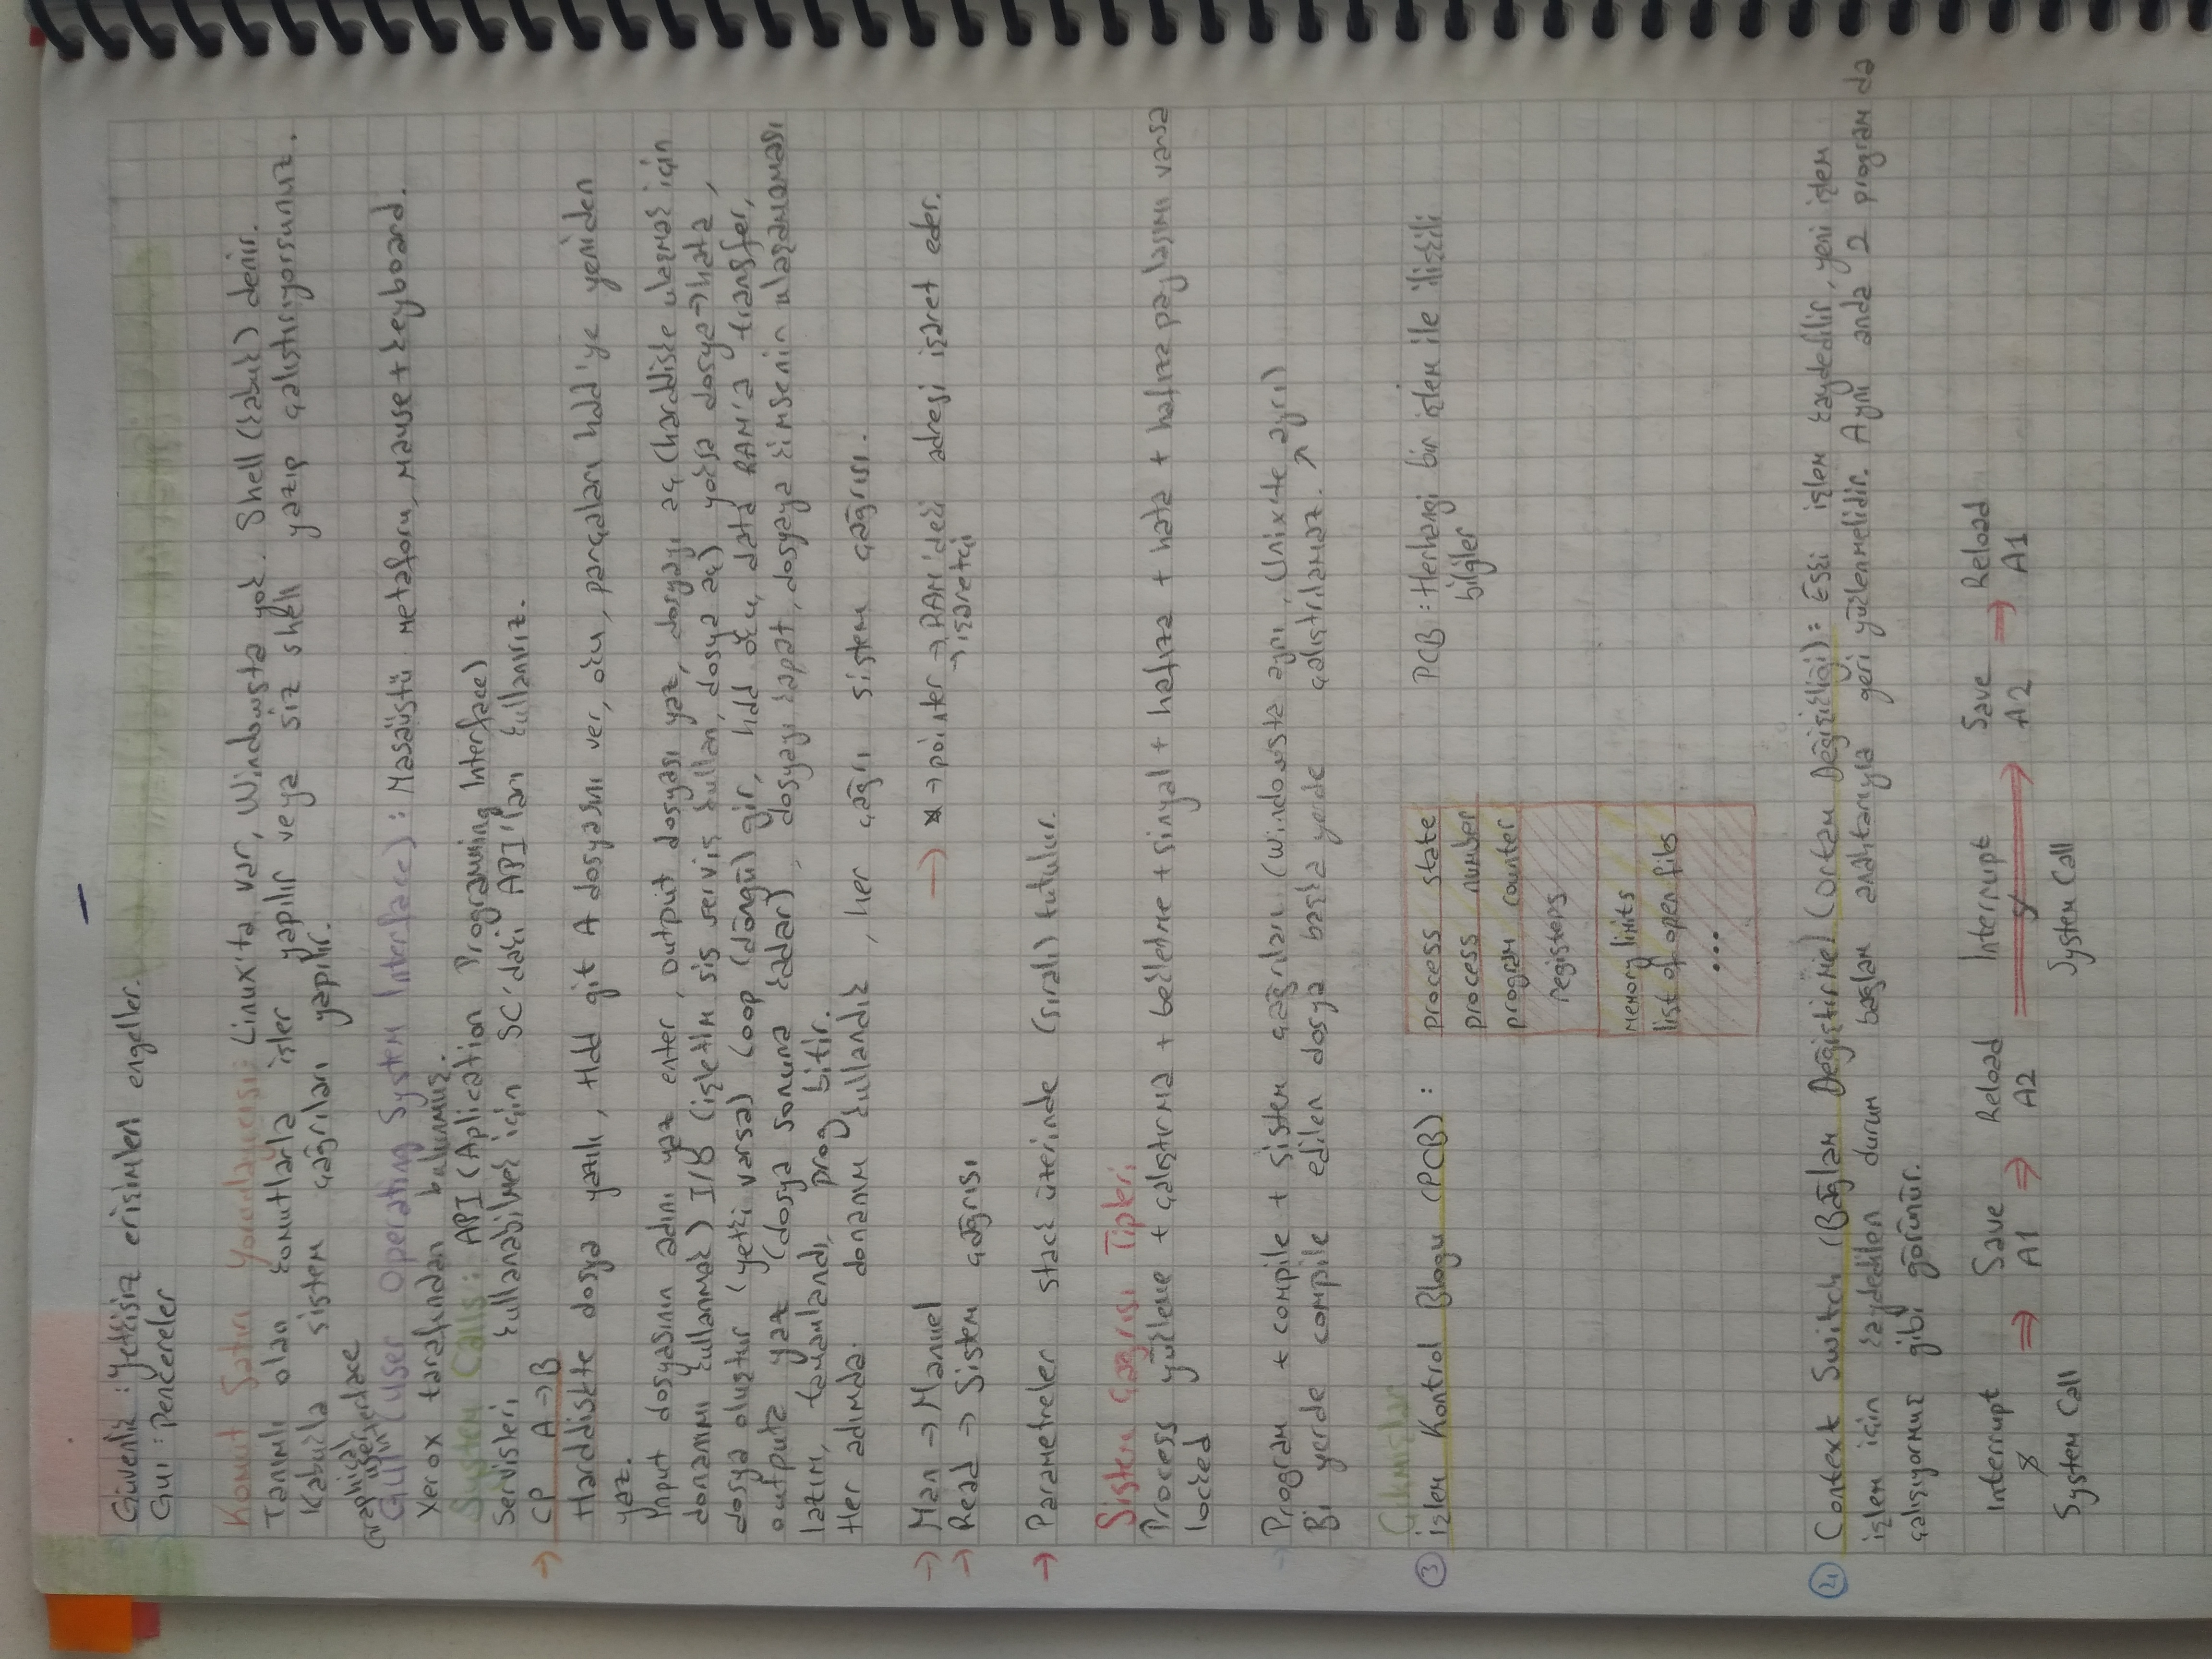 Güvenlik : Yetkisiz erişimleri engeller.
GUI : Pencereler
Komut Satırı Yorumlayıcısı: Linux'ta var, Windowsta yok. Shell (kabuk) denir.
Tanımlı olan komutlarla işler yapılır veya siz shell yazıp çalıştırıyorsunuz.
Kabukla sistem çağrıları yapılır.
Graphical user interface
GUI (User Operating System Interface) : Masaüstü metaforu, mause + keyboard.
Xerox tarafından bulunmuş.
System Calls : API (Aplication Programming Interface)
Servisleri kullanabilmek için SC'daki API'ları kullanırız.
→ CP A → B
Harddiskte dosya yazılı, Hdd git A dosyasını ver, oku, parçaları hdd'ye yeniden
yaz.
Input dosyasının adını yaz enter, output dosyası yaz, dosyayı aç (harddiske ulaşmak için
donanımı kullanmak) I/O (işletim sis servis kullan, dosya aç) yoksa dosya → hata,
dosya oluştur (yetki varsa) Loop (döngü) gir, hdd oku, data RAM'a transfer,
outputa yaz (dosya sonuna kadar), dosyayı kapat, dosyaya kimsenin ulaşamaması
lazım, tamamlandı, prog bitir.
Her adımda donanım kullandık, her çağrı sistem çağrısı.
→ Man → Manuel
→ * → pointer → RAM'deki adresi işaret eder.
→ işaretçi
→ Read → Sistem çağrısı
→ Parametreler stack üzerinde (sıralı) tutulur.
Sistem Çağrısı Tipleri
Process yükleme + çalıştırma + bekletme + sinyal + hafıza + hata + hafıza paylaşımı varsa
locked
Program + compile + sistem çağrıları (Windowsta aynı, Unixte ayrı)
Bi yerde compile edilen dosya başka yerde çalıştrılamaz. ↗
Çıkmışlar
③ İşlem Kontrol Blogu (PCB) :
process state
process number
program counter
registers
memory limits
list of open files
...
PCB : Herhangi bir işlem ile ilişkili
bilgiler
② Context Switch (Bağlam Değiştirme) (Ortam Değişikliği) : Eski işlem kaydedilir, yeni işlem
işlem için kaydedilen durum başlam anahtarıyla geri yüklenmelidir. Aynı anda 2 program da
çalışıyormuş gibi görünür.
Interrupt Save Reload Interrupt Save → Reload
⇒ A1 ⇒ A2 ⇒ A2 A1
System Call System Call